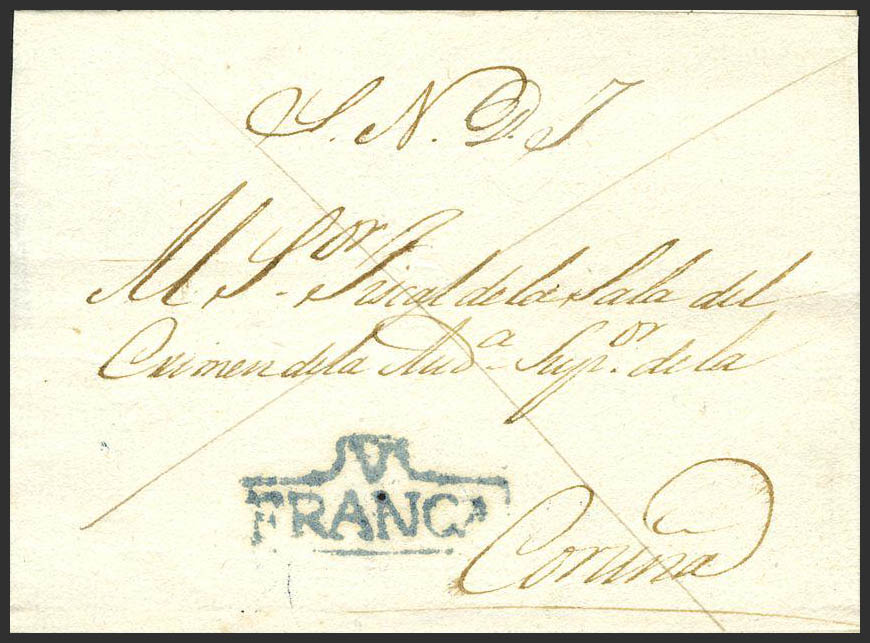 S. N. D. J
Al S.or Fiscal de la Sala del
Crimen de la Aud.a Sup.or de la
V
FRANCA
Coruña